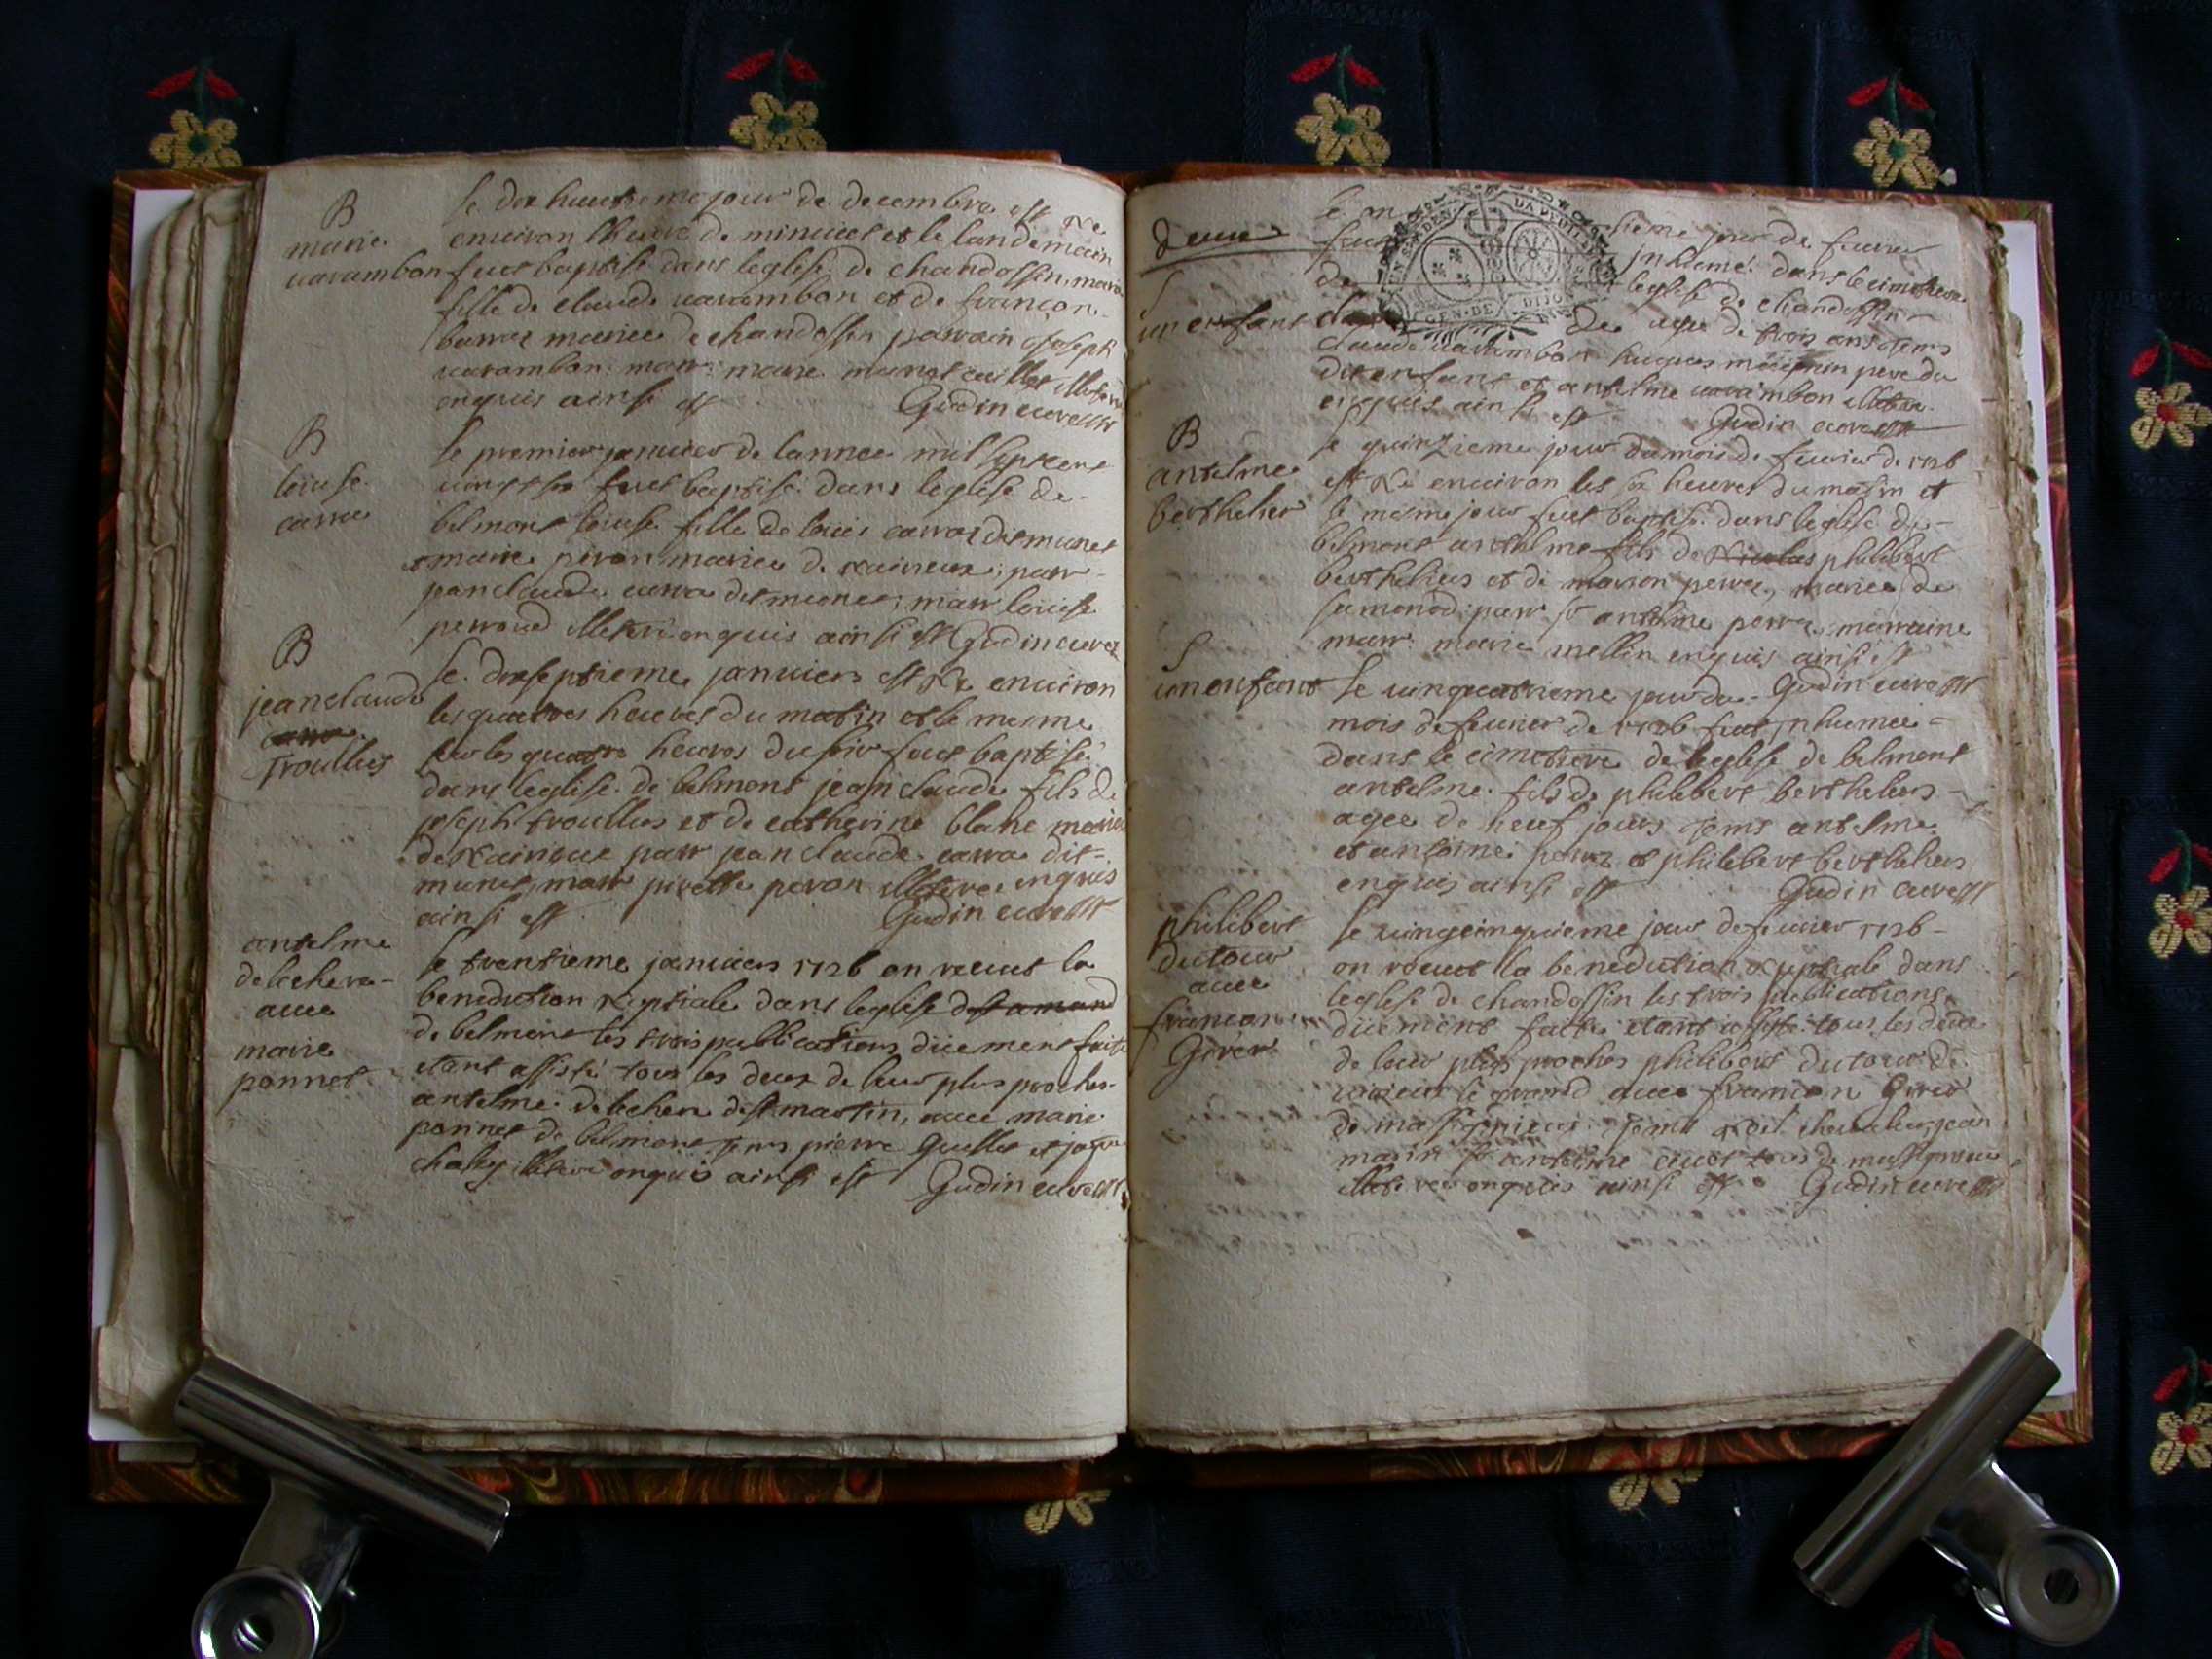 B
marie
varambon
le dix huictieme jour de decembre est Ne
environ lheure de minuict et le landemain
fuct baptisé dans leglise de chandossin, marie
fille de claude varambon et de françon
barraz mariee de chandossin parrain joseph
varambon marr: marie munet
enquis ainsi est Gudin curé
B
louise
carra
le premier janvier de lannee mil sept cent
vingt six fuct baptisé dans leglise de
belmont louise fille de louis carraz dit munet
marie peron mariee de
jean claude carra dit munet; marr louise
perroud illiteré enquis ainsi est Gudin curé
B
jean claude
carra
Troullus
le dix septieme janviers est Ne environ
les quattres heures du matin et le mesme
sur les quattre heures du soir fuct baptisé
dans leglise de belmont jean claude fils de
joseph troullus et de catherine blanc mariee
de parr jean claude carra dit
munet, marr pirette peron illitere enquis
ainsi est Gudin curé
antelme
delechere
avec
marie
ponnet
le trentieme janviers 1726 on receuct la
benediction Nuptiale dans leglise de st amand
de belmont les trois publications düement faite
etant assisté tous les deux de leur plus proches
antelme delechere de st martin, avec marie
ponnet de belmont tems pierre quillet et
illitere enquis ainsi est Gudin curé
GEN. DE DIJON
S
un enfant
le on
fuct
de
tieme jour de fevrier
inhumé dans le cimetiere
leglise de chandossin
age de trois ans tems
claude varambon hugues pere du
dit enfant et antelme varambon illitere
enquis ainsi est Gudin curé
B
antelme
berthelier
le quinzieme jour du mois de fevrier de 1726
est Né environ les six heures du matin et
le mesme jour fuct baptisé dans leglise de
belmont anthelme fils de Nicolas philibert
bertheliers et de marion perraz, mariee de
samonod: parr. Sr anthelme perraz, marraine
marr: marie mellin enquis ainsi est
Gudin curé
S
un enfant
le vingquatrieme jour du
mois de fevrier de 1726 fuct inhumee
dans le cimetiere de leglise de belmont
antelme fils de philibert bertheliers
agee de neuf jours tems antelme
et antoine perraz et philibert bertheliers
enquis ainsi est Gudin curé
philibert
dutour
avec
françon
Girer
le vingcinquieme jour de fevrier 1726
on receuct la benediction Nuptiale dans
leglise de chandossin les trois publications
düement faitte etant assisté tous les deux
de leur plus proches philibert dutour de
le grand avec françon Girer
de massignieu tems jean
marin Sr antelme tous de massignieu
illitere enquis ainsi est Gudin curé